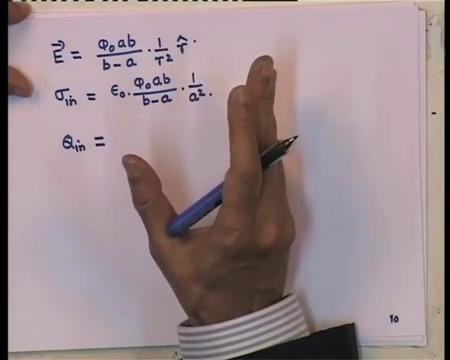 E⃗ = φ₀ab / b-a · 1/r² r̂.
σin = ε₀. φ₀ab / b-a · 1/a².
Qin =
10